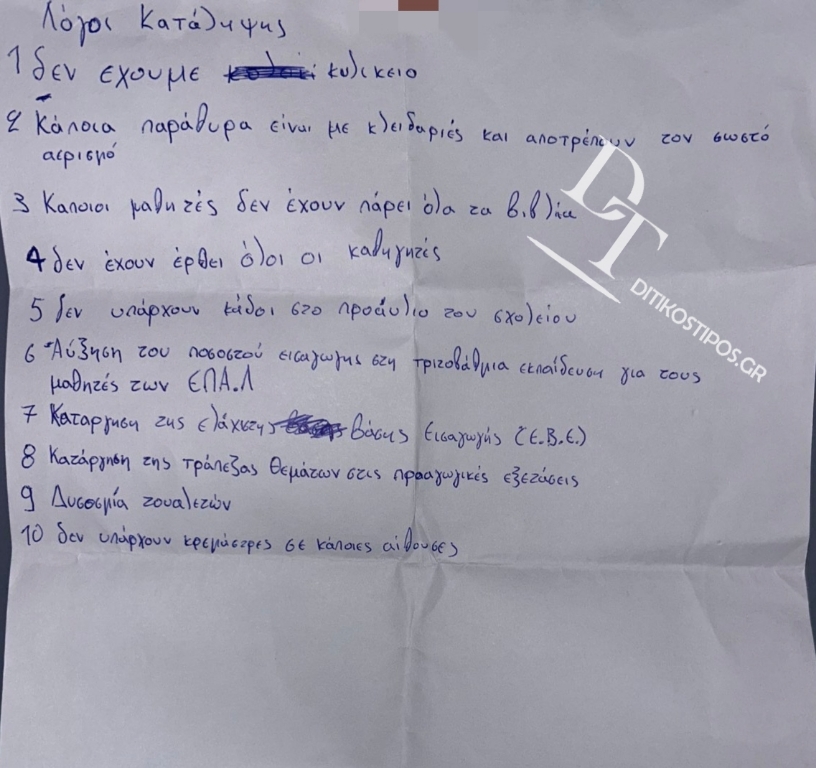 Λόγοι Κατάληψης
1 δεν εχουμε κυλικειο
2 Κάποια παράθυρα είναι με κλειδαριές και αποτρέπουν τον σωστό
αερισμό
3 Καποιοι μαθητές δεν έχουν πάρει όλα τα βιβλία
4 δεν έχουν έρθει όλοι οι καθηγητές
5 δεν υπάρχουν κάδοι στο προαύλιο του σχολείου
6 Αύξηση του ποσοστού εισαγωγης στη τριτοβάθμια εκπαίδευση για τους
μαθητές των ΕΠΑ.Λ
7 Καταργηση της ελάχιστης βάσης Εισαγωγής (Ε.Β.Ε.)
8 Κατάργηση της τράπεζας θεμάτων στις προαγωγικές εξετάσεις
9 Δυσοσμία τουαλετών
10 δεν υπάρχουν κρεμάστρες σε κάποιες αίθουσες
DT
DITIKOSTIPOS.GR